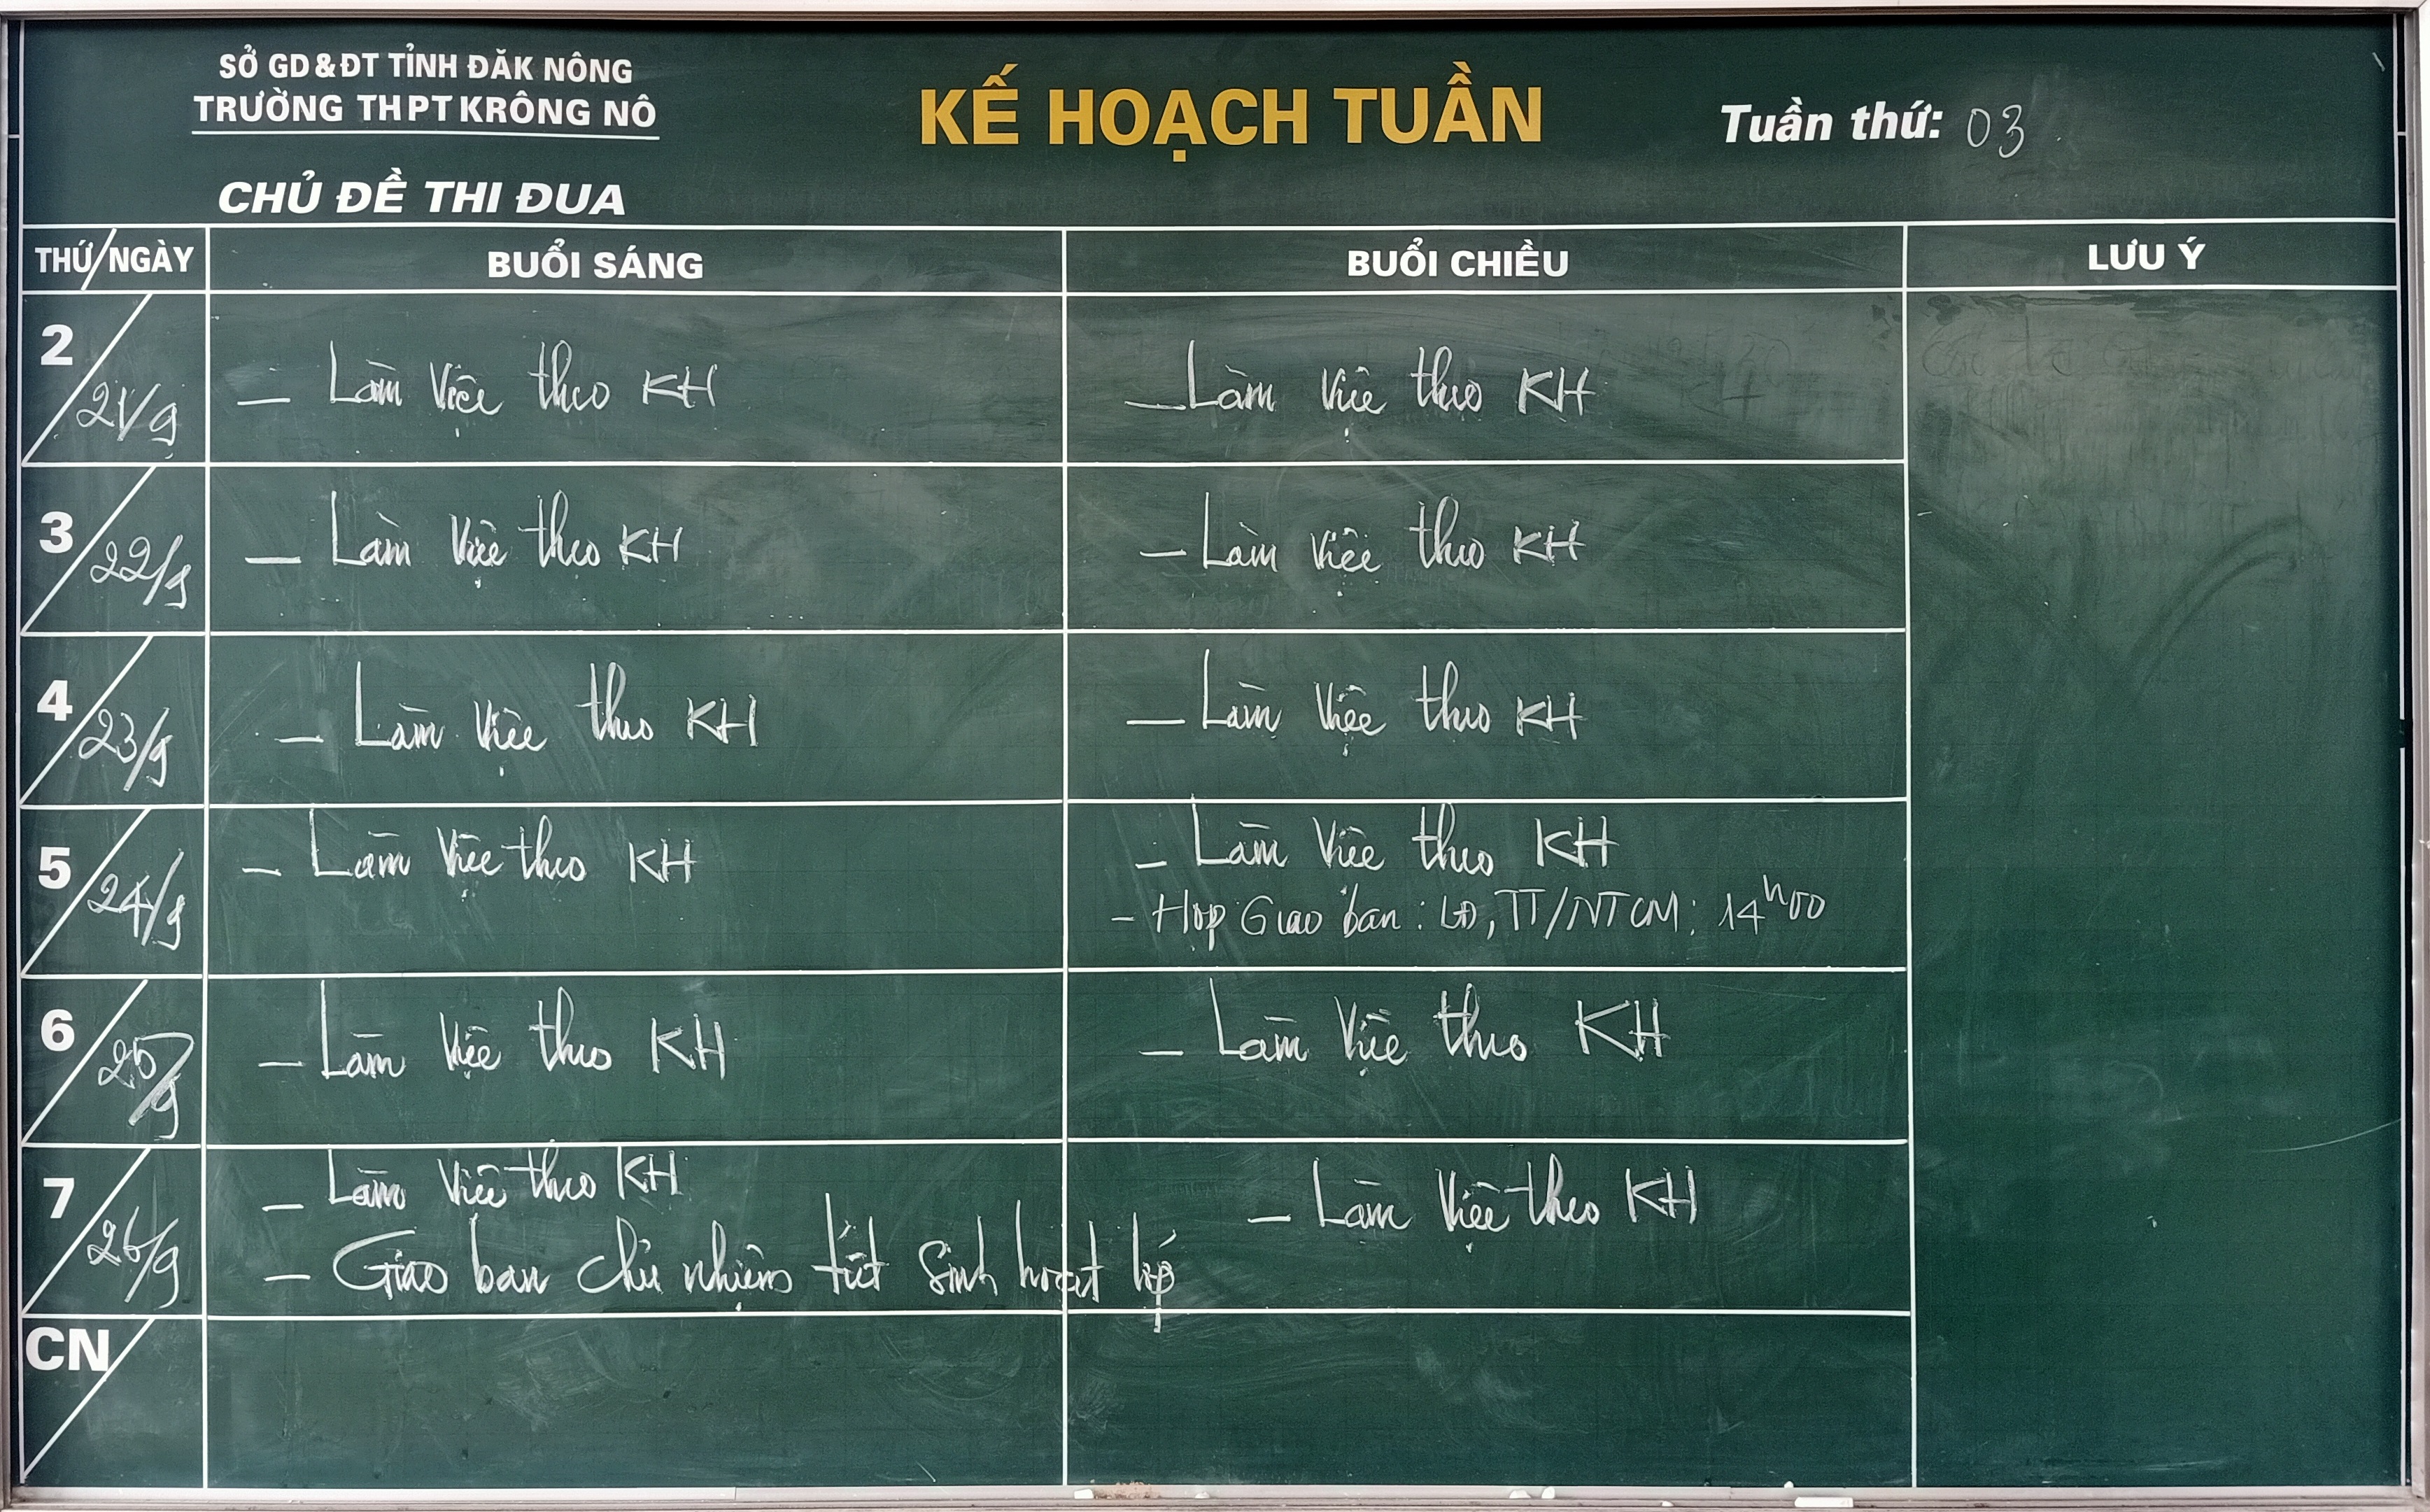 SỞ GD&ĐT TỈNH ĐĂK NÔNG
TRƯỜNG THPT KRÔNG NÔ
KẾ HOẠCH TUẦN
Tuần thứ: 03
CHỦ ĐỀ THI ĐUA
THỨ/NGÀY BUỔI SÁNG BUỔI CHIỀU LƯU Ý
2 21/9 - Làm việc theo KH - Làm việc theo KH
3 22/9 - Làm việc theo KH - Làm việc theo KH
4 23/9 - Làm việc theo KH - Làm việc theo KH
5 24/9 - Làm việc theo KH - Làm việc theo KH
- Họp Giao ban: LĐ, TT/NTCM: 14h00
6 25/9 - Làm việc theo KH - Làm việc theo KH
7 26/9 - Làm việc theo KH - Làm việc theo KH
- Giao ban chủ nhiệm tiết sinh hoạt lớp
CN